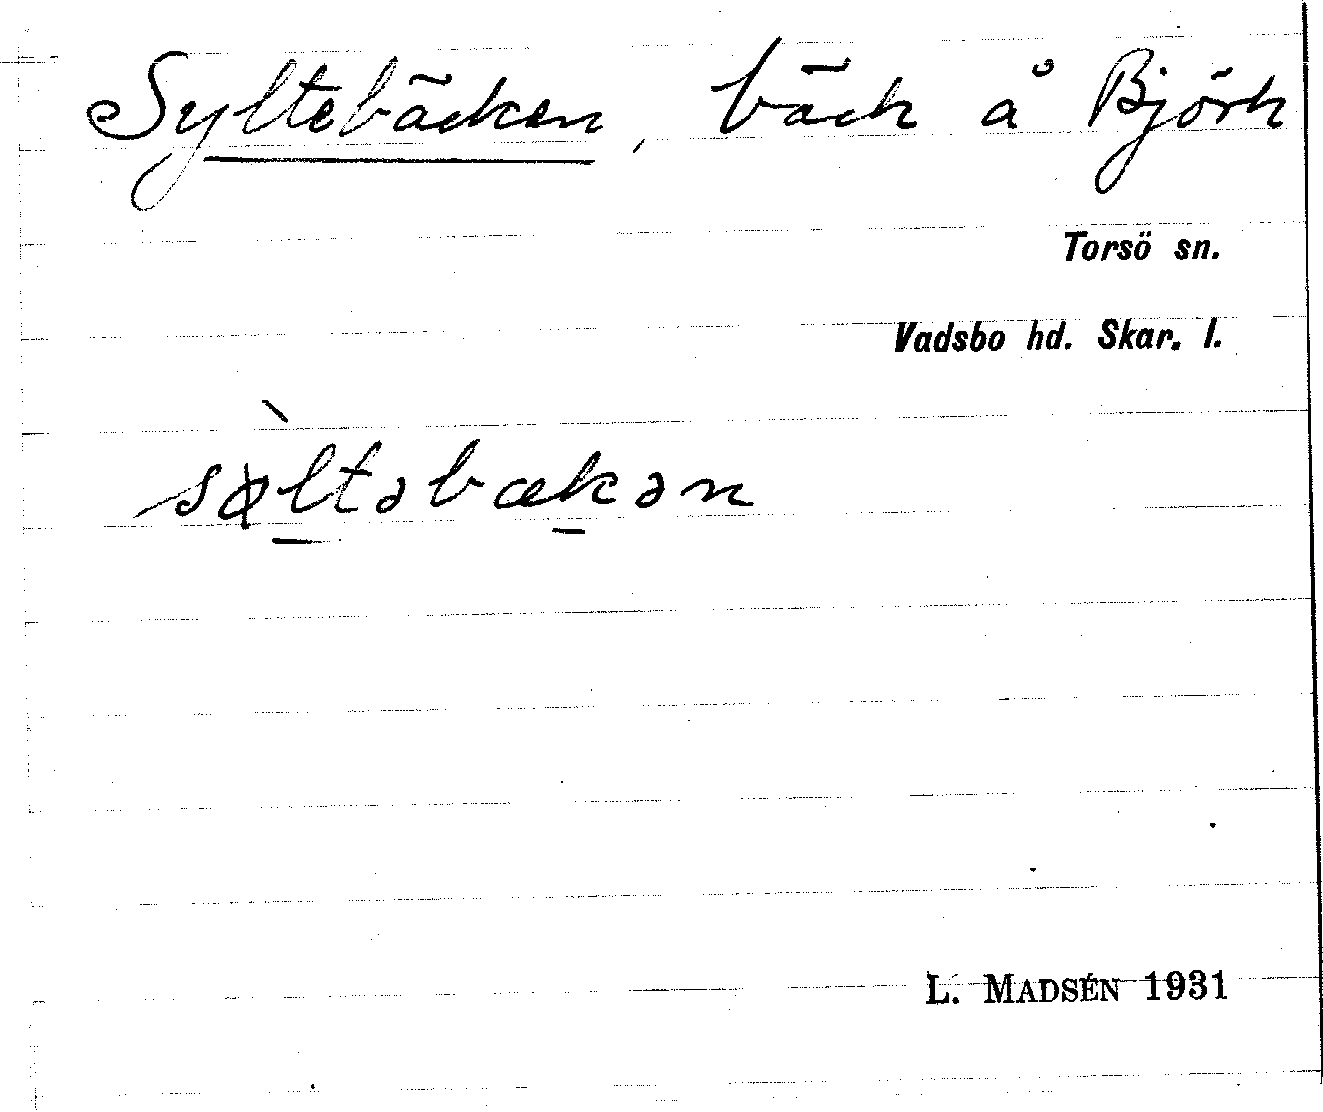 Syltebäcken, bäck å Björk
Torsö sn.
Vadsbo hd. Skar. l.
sø̀ltəbækən
L. MADSÉN 1931